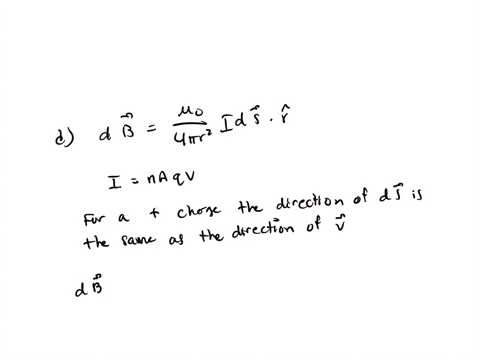 d) d B⃗ = μ₀/4πr² I d s⃗ · r̂
I = nAqv
For a + charge the direction of d s⃗ is
the same as the direction of v⃗
d B⃗